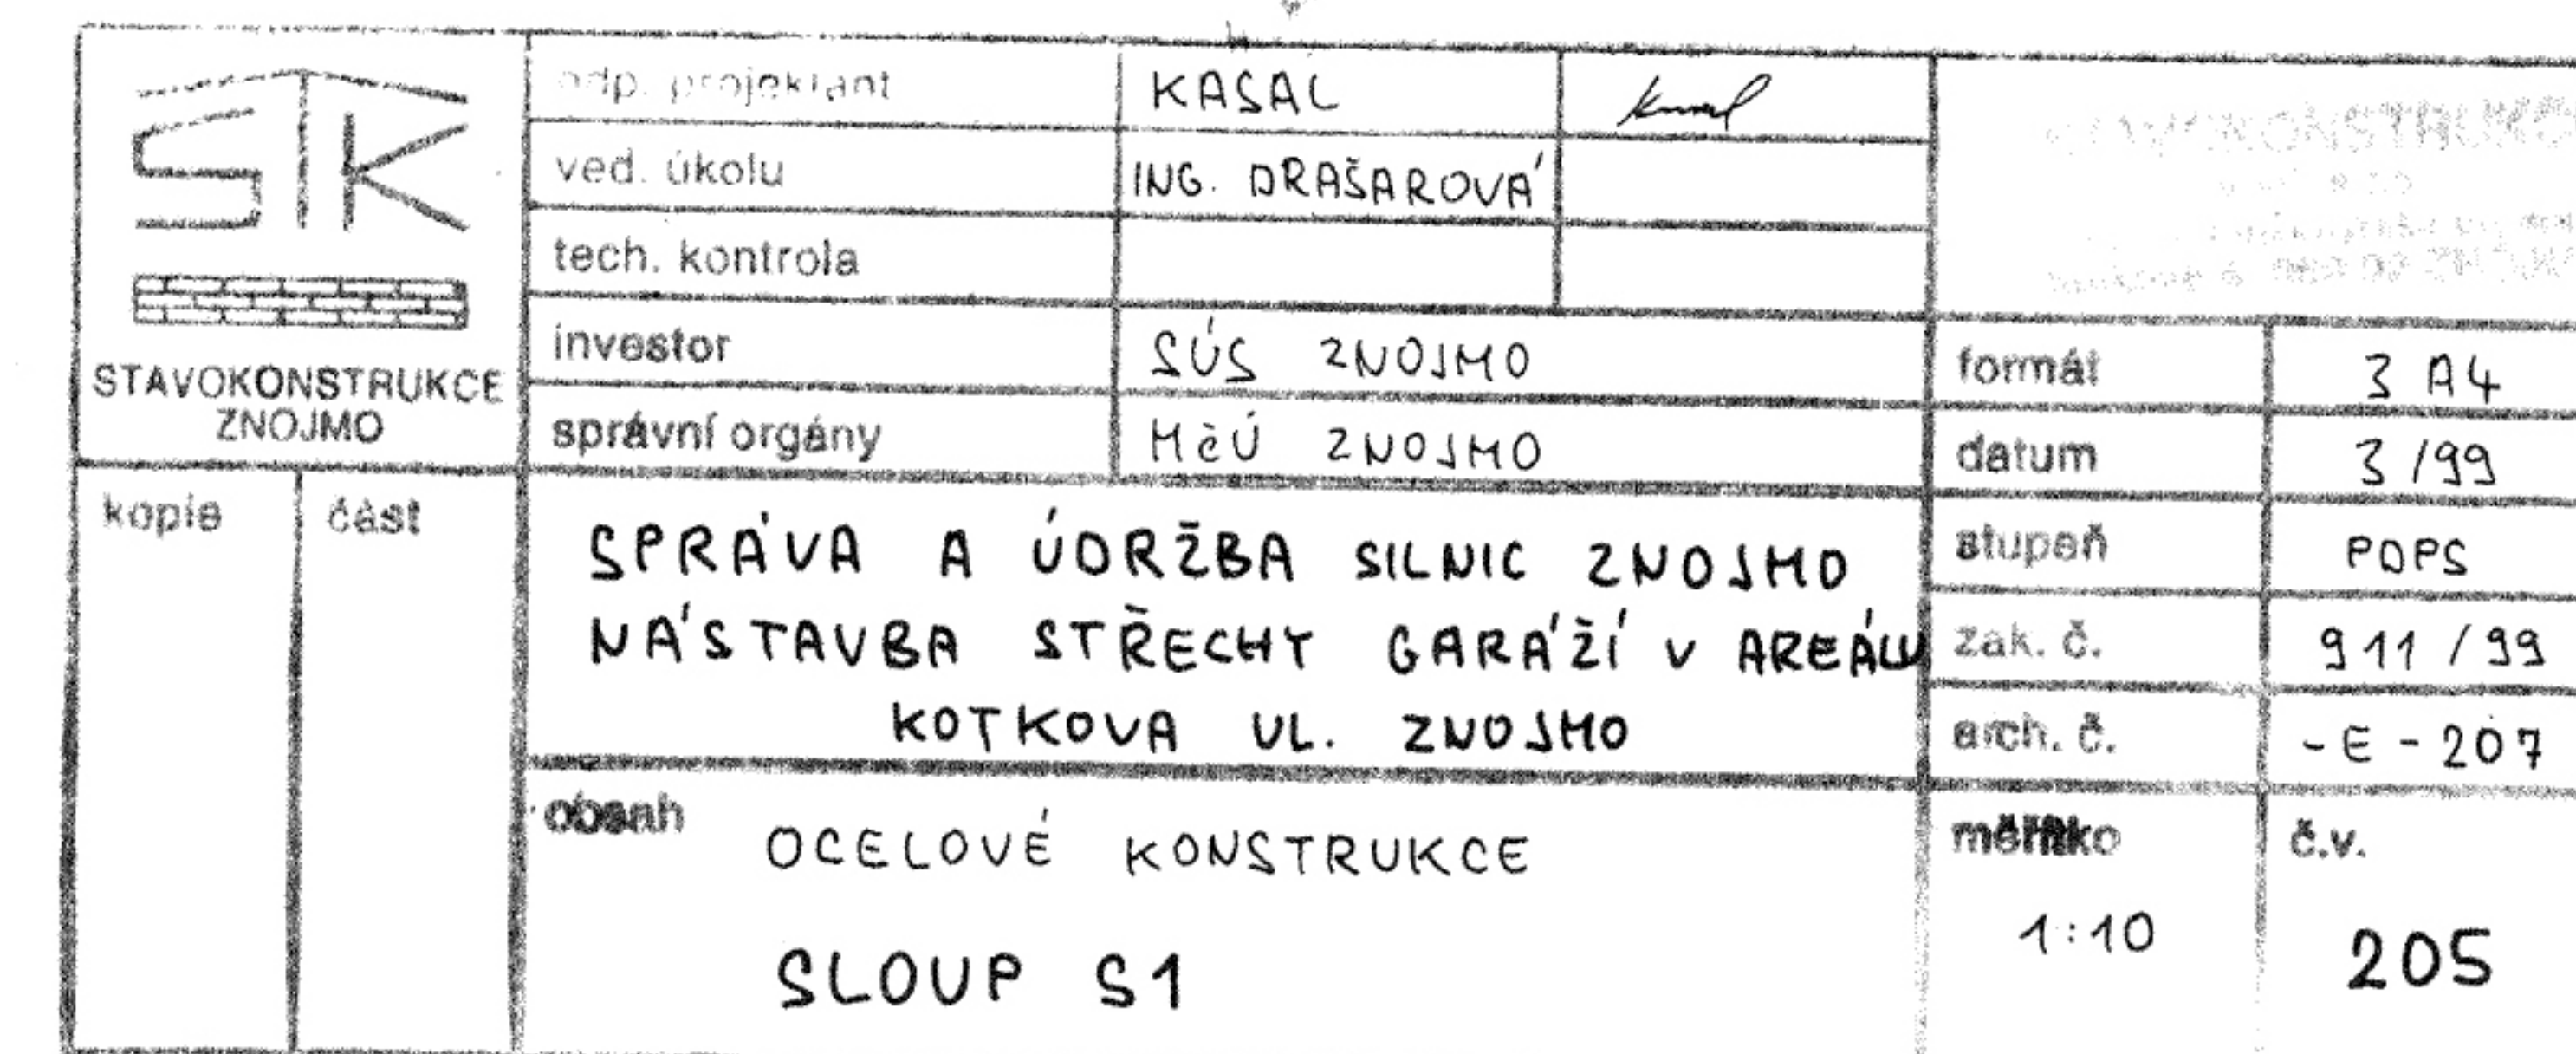 STK
STAVOKONSTRUKCE
ZNOJMO
kopie část
odp. projektant KASAL
ved. úkolu ING. DRAŠAROVÁ
tech. kontrola
investor SÚS ZNOJMO
správní orgány MěÚ ZNOJMO
SPRÁVA A ÚDRŽBA SILNIC ZNOJMO
NÁSTAVBA STŘECHY GARÁŽÍ V AREÁLU
KOTKOVA UL. ZNOJMO
obsah
OCELOVÉ KONSTRUKCE
SLOUP S1
formát 3 A4
datum 3/99
stupeň PDPS
zak. č. 911/99
arch. č. -E-207
měřítko č.v.
1:10 205